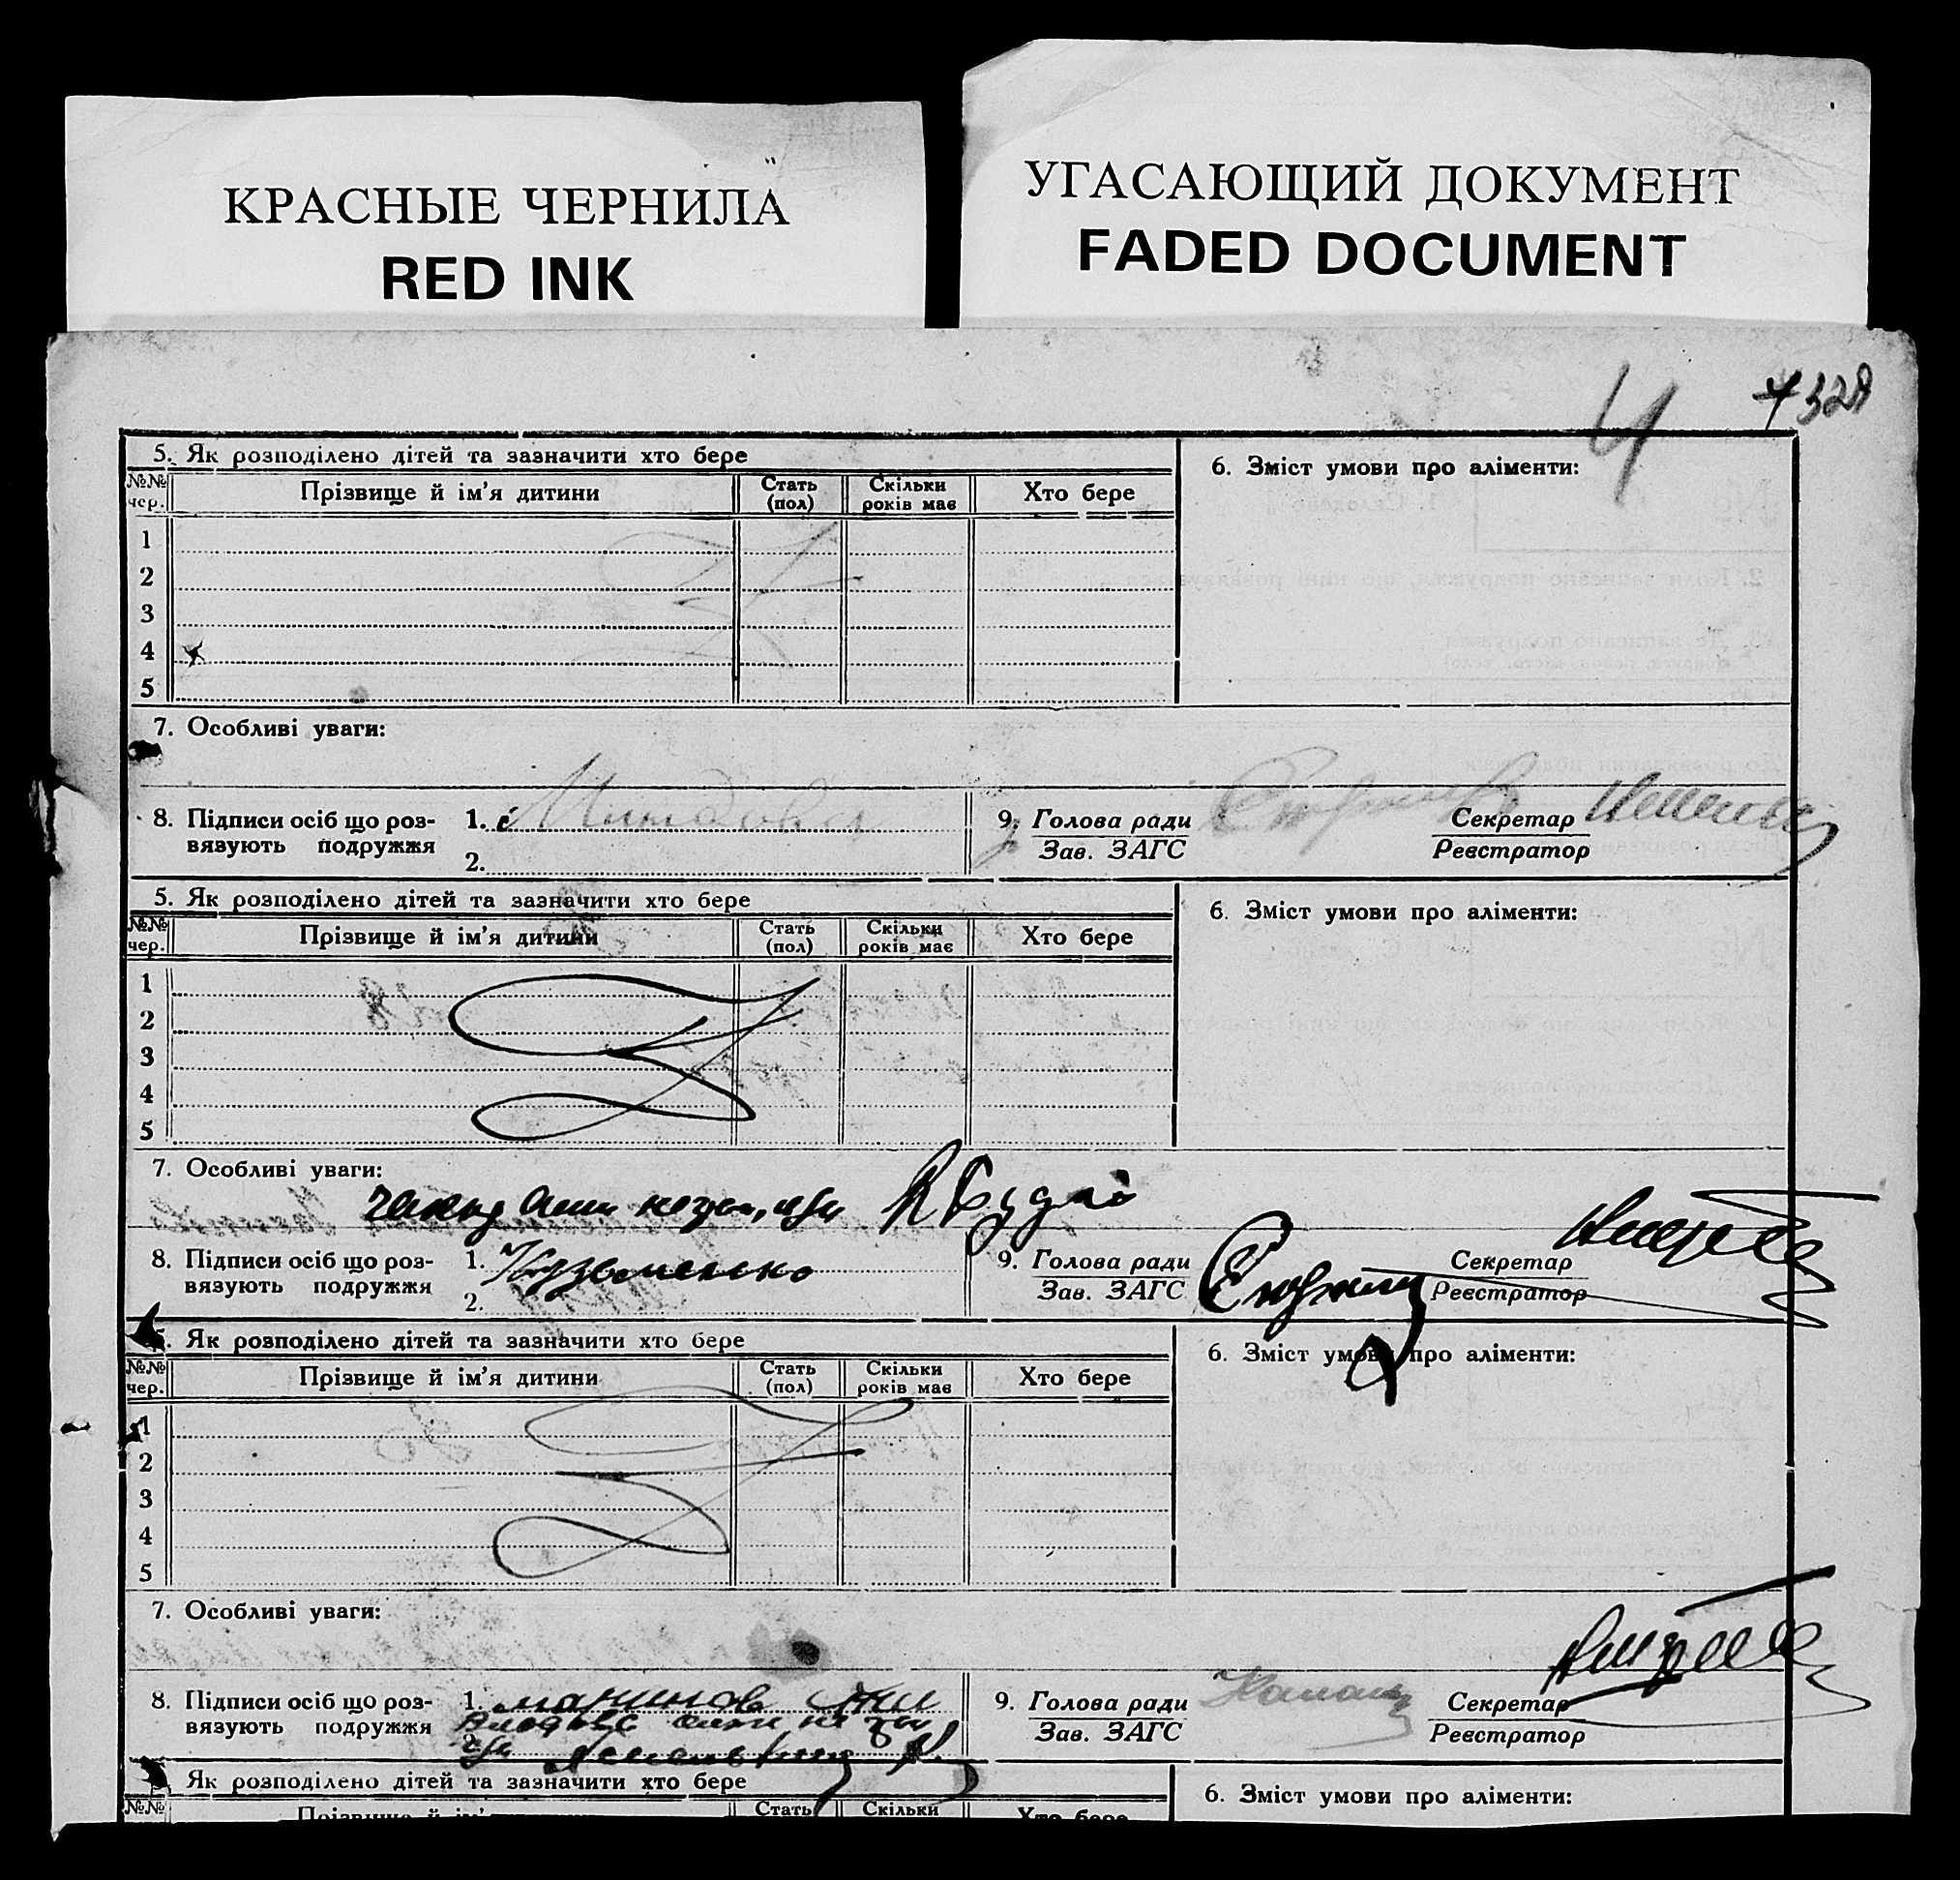 КРАСНЫЕ ЧЕРНИЛА
RED INK
УГАСАЮЩИЙ ДОКУМЕНТ
FADED DOCUMENT
4
5. Як розподілено дітей та зазначити хто бере
6. Зміст умови про аліменти:
№№ чер.
Прізвище й ім'я дитини
Стать (пол)
Скільки років має
Хто бере
1
2
3
4
5
7. Особливі уваги:
8. Підписи осіб що роз-
вязують подружжя
1.
2.
9. Голова ради
Зав. ЗАГС
Секретар
Реєстратор
5. Як розподілено дітей та зазначити хто бере
6. Зміст умови про аліменти:
№№ чер.
Прізвище й ім'я дитини
Стать (пол)
Скільки років має
Хто бере
1
2
3
4
5
7. Особливі уваги:
8. Підписи осіб що роз-
вязують подружжя
1. Кузьменко
2.
9. Голова ради
Зав. ЗАГС
Секретар
Реєстратор
5. Як розподілено дітей та зазначити хто бере
6. Зміст умови про аліменти:
№№ чер.
Прізвище й ім'я дитини
Стать (пол)
Скільки років має
Хто бере
1
2
3
4
5
7. Особливі уваги:
8. Підписи осіб що роз-
вязують подружжя
1.
2.
9. Голова ради
Зав. ЗАГС
Секретар
Реєстратор
Як розподілено дітей та зазначити хто бере
6. Зміст умови про аліменти:
№№
Прізвище й ім'
Стать
Скільки
Хто бере